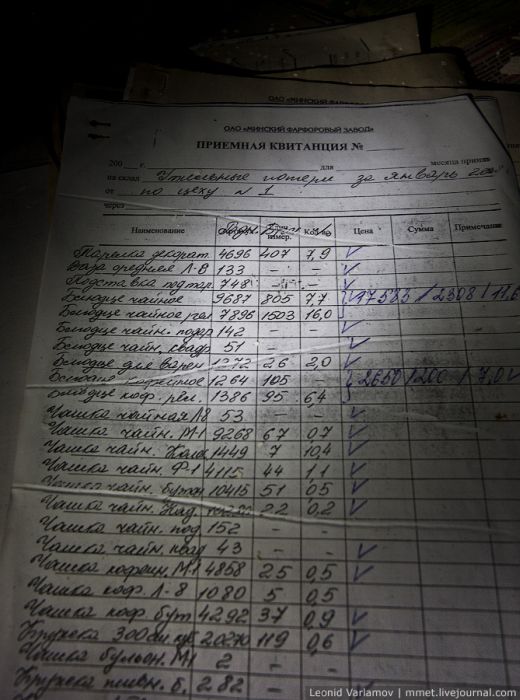 ОАО «МИНСКИЙ ФАРФОРОВЫЙ
ОАО «МИНСКИЙ ФАРФОРОВЫЙ ЗАВОД»
ПРИЕМНАЯ КВИТАНЦИЯ №
200 г. для месяца
на склад Утильные потери за январь
от по цеху N 1
через
Наименование Цена Сумма Примечание
декорат. 4696 407
Ваза средняя Л-8 133 - -
748 - -
Блюдце чайное 9687 805 7,7
Блюдце чайное рел 7896 1503 16,0
Блюдце чайн. подар 142 -
Блюдце чайн. квадр 51 - -
Блюдце для варен 1272 26 2,0
Блюдце кофейное 1264 105 - 2650/200/7,0
Блюдце коф. рел. 1386 95 6,4
Чашка чайная Л8 53 - -
Чашка чайн. М-1 9268 67 0,7
Чашка чайн. 1449 7
Чашка чайн. Ф-1 4115 44 1,1
Чашка чайн. бутон 10415 51 0,5
Чашка чайн. 22 0,2
Чашка чайн. под 152 - -
Чашка чайн. квад 43 - -
Чашка кофейн. М-1 4858 25 0,5
Чашка коф. Л-8 1080 5 0,5
Чашка коф. бут 4292 37 0,9
Кружка 300 20270 119 0,6
Чашка бульон. М1 2 - -
Кружка пивн. б. 282 - -
Leonid Varlamov | mmet.livejournal.com